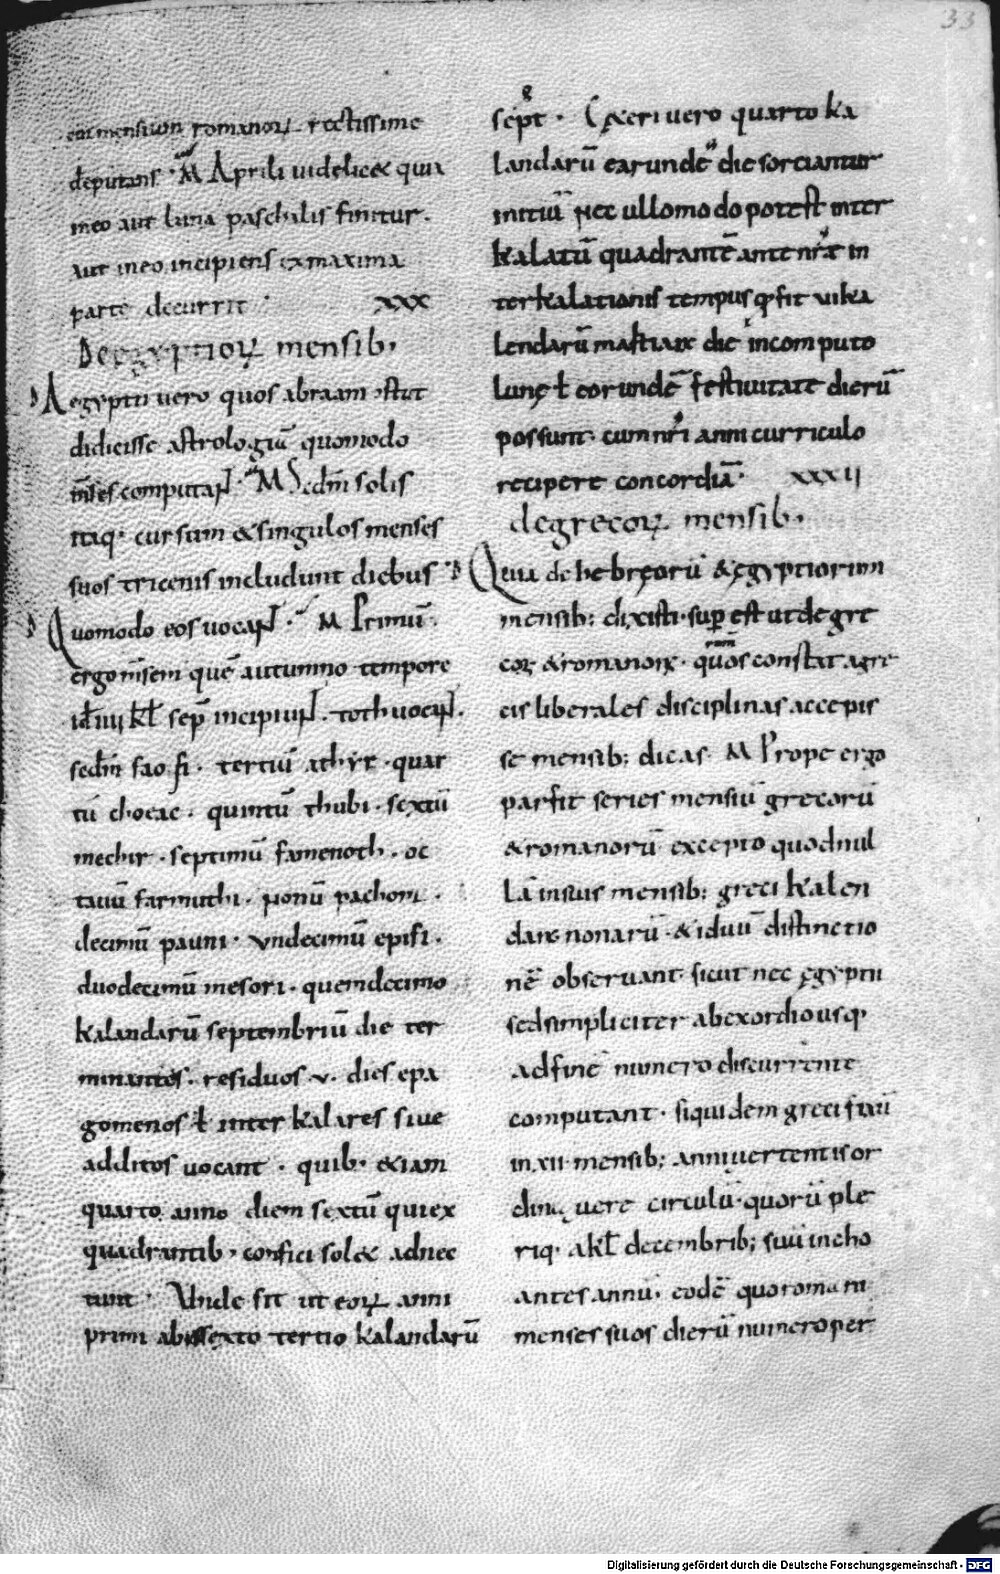 33
mensium romanoꝝ rectissime
deputans. M Aprili uidelicet quia
ineo aut luna paschalis finitur.
aut ineo incipiens ex maxima
parte decurrit. XXX
De egyptioꝝ mensib.
Aegyptii vero quos abraam
didicisse astrologiā quomodo
m̄ses computaɴ̄t. M Scdm̄ solis
itaq. cursum & singulos menses
suos tricenis includunt diebus
Quomodo eos uocaɴ̄t. M Primū.
ergo m̄sem quē autumno tempore
id iiii kł sep̄ incipiuɴ̄t. toth uocaɴ̄t.
scdm̄ faofi. tertiū athyr. quar
tū choeac. quintū thubi. sextū
mechir. septimū famenoth. oc
tauū farmuthi. nonū pachom.
decimū pauni. vndecimū epifi.
duodecimū mesori. quemdecimo
kalandarū septembriū die ter
minantes. residuos .v. dies epa
gomenos ł inter kalares siue
additos uocant. quib. etiam
quarto anno diem sextū qui ex
quadrantib. confici solet adnec
tunt. Unde fit ut eoꝝ anni
primi abissexto tertio kalandarū
sept. Ceteri vero quarto ka
landarū earundē die sorciantur
initiū Nec ullomodo potest inter
kalatū quadrantē ante nr̄ae in
terkalationis tempus ꝙ fit vi ka
lendarū martiarꝝ die incomputo
lunę ł eorundē festiuitate dierū
possunt. cum nr̄i anni curriculo
recipere concordiā. XXXII
degrecoꝝ mensib.
Quia de hebręorū & ęgyptiorum
mensib; dixisti. sup̱ est ut de gre
coꝝ & romanoꝝ. quos constat agre
cis liberales disciplinas accepis
se mensib; dicas. M Prope ergo
par fit series mensiū grecorū
& romanorū excepto quod nul
lā insuis mensib; greci kalen
darꝝ nonarū. & iduū distinctio
nē observant sicut nec ęgyptii
sed simpliciter abexordio usq.
ad finē numero discurrente
computant. siquidem greci suū
in .xii. mensib; anni uertentis or
dinauere circulū. quorū ple
riq. akł decembrib; suū incho
antes annū. eodē quo romani
menses suos dierū numero per
Digitalisierung gefördert durch die Deutsche Forschungsgemeinschaft - DFG